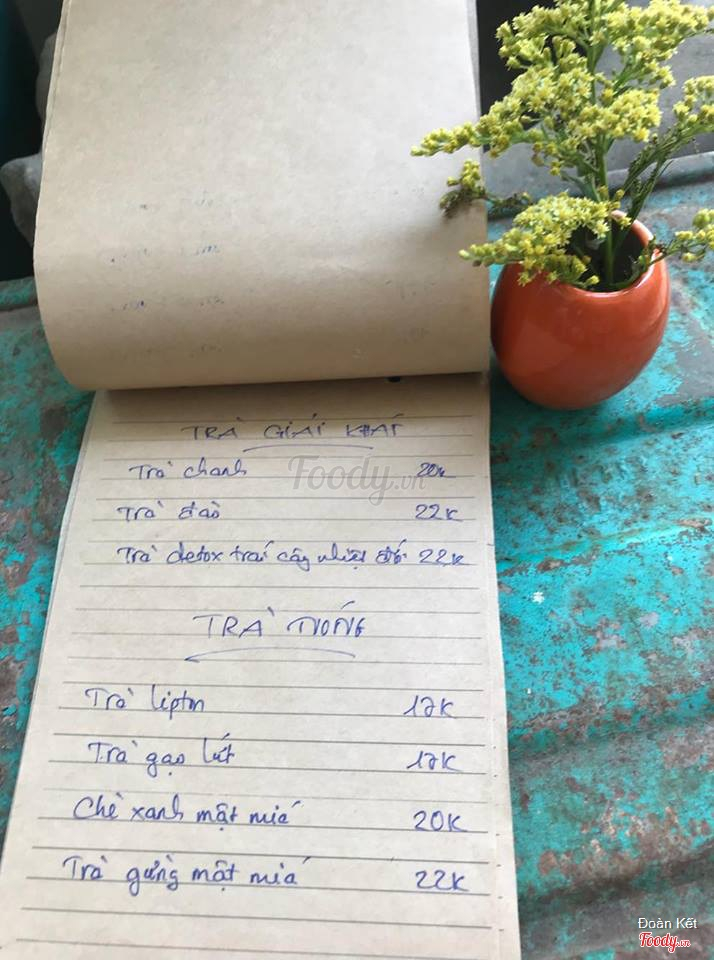 TRÀ GIẢI KHÁT
Trà chanh 20K
Foody.vn
Trà đào 22K
Trà detox trái cây nhiệt đới 22K
TRÀ NÓNG
Trà lipton 17K
Trà gạo lứt 17K
Chè xanh mật mía 20K
Trà gừng mật mía 22K
Đoàn Kết
Foody.vn